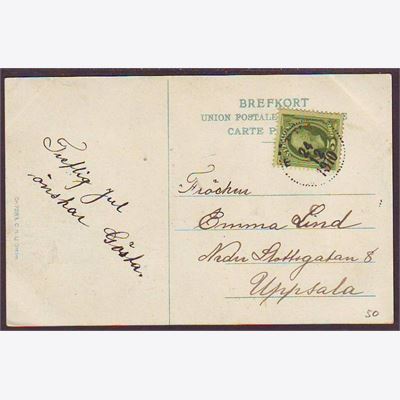 BREFKORT
UNION POSTALE
CARTE P
24
1910
Treflig Jul
önskar Gösta.
Fröcken
Emma Lind
Nedre Slottsgatan 8
Uppsala
50